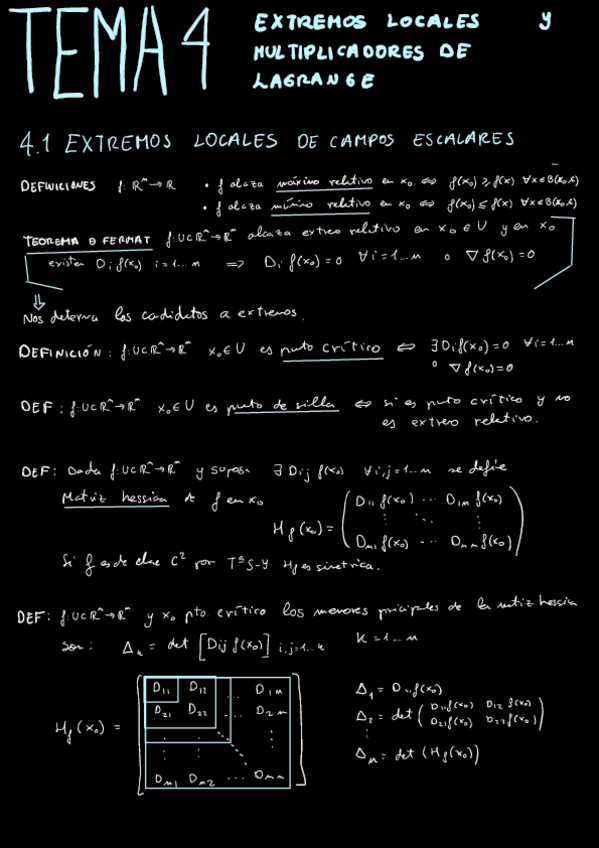 TEMA 4
EXTREMOS LOCALES Y
MULTIPLICADORES DE
LAGRANGE
4.1 EXTREMOS LOCALES DE CAMPOS ESCALARES
DEFINICIONES f: Rⁿ→R • f alcaza máximo relativo en x₀ ⇔ f(x₀) ≥ f(x) ∀x∈B(x₀,r)
• f alcaza mínimo relativo en x₀ ⇔ f(x₀) ≤ f(x) ∀x∈B(x₀,r)
TEOREMA D FERMAT f:U⊂Rⁿ→Rᵐ alcaza extreo relativo en x₀∈U y en x₀
existen Dᵢf(x₀) i=1...n ⇒ Dᵢf(x₀)=0 ∀i=1...n o ∇f(x₀)=0
⇓
Nos determa los cadidatos a extremos.
DEFINICIÓN: f:U⊂Rⁿ→Rᵐ x₀∈U es puto crítico ⇔ ∃Dᵢf(x₀)=0 ∀i=1...n
o ∇f(x₀)=0
DEF: f:U⊂Rⁿ→Rᵐ x₀∈U es puto de silla ⇔ si es puto crítico y no
es extreo relativo.
DEF: Dada f:U⊂Rⁿ→Rᵐ y supoα ∃Dij f(x₀) ∀i,j=1...n se define
Matriz hessiaa de f en x₀
Hf(x₀) = ( D₁₁f(x₀) ... D₁ₙf(x₀)
⋮ ⋱ ⋮
Dₙ₁f(x₀) ... Dₙₙf(x₀) )
Si f es de clase C² por Tª S-Y Hf es simetrica.
DEF: f:U⊂Rⁿ→Rᵐ y x₀ pto. crítico los menores pricipales de la matiz hessiaa
son: Δₖ = det [Dij f(x₀)] i,j=1...k K=1...n
Hf(x₀) = [ D₁₁ D₁₂ ... D₁ₙ
D₂₁ D₂₂ ... D₂ₙ
⋮ ⋮ ⋮
Dₙ₁ Dₙ₂ ... Dₙₙ ]
Δ₁ = D₁₁f(x₀)
Δ₂ = det ( D₁₁f(x₀) D₁₂f(x₀)
D₂₁f(x₀) D₂₂f(x₀) )
⋮
Δₙ = det (Hf(x₀))